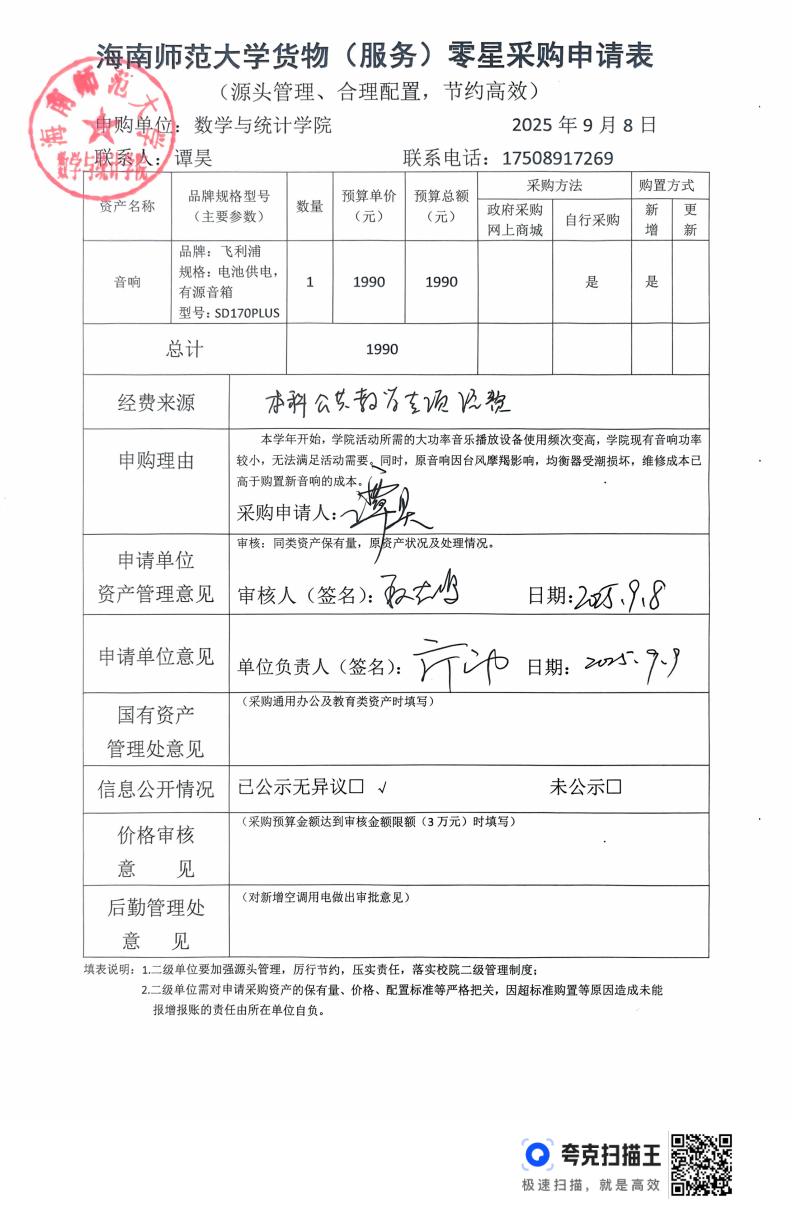 海南师范大学货物（服务）零星采购申请表
（源头管理、合理配置，节约高效）
申购单位：数学与统计学院 2025 年 9 月 8 日
联系人：谭昊 联系电话：17508917269
海南师范大学
数学与统计学院
资产名称 品牌规格型号（主要参数） 数量 预算单价（元） 预算总额（元） 采购方法 购置方式
政府采购网上商城 自行采购 新增 更新
音响 品牌：飞利浦 1 1990 1990 是 是
规格：电池供电，
有源音箱
型号：SD170PLUS
总计 1990
经费来源 本科公共教学专项经费
申购理由 本学年开始，学院活动所需的大功率音乐播放设备使用频次变高，学院现有音响功率
较小，无法满足活动需要。同时，原音响因台风摩羯影响，均衡器受潮损坏，维修成本已
高于购置新音响的成本。
采购申请人：谭昊
申请单位
资产管理意见
审核：同类资产保有量，原资产状况及处理情况。
审核人（签名）： 日期：2025.9.8
申请单位意见 单位负责人（签名）： 日期：2025.9.9
国有资产
管理处意见
（采购通用办公及教育类资产时填写）
信息公开情况 已公示无异议□ √ 未公示□
价格审核
意 见
（采购预算金额达到审核金额限额（3 万元）时填写）
后勤管理处
意 见
（对新增空调用电做出审批意见）
填表说明：1.二级单位要加强源头管理，厉行节约，压实责任，落实校院二级管理制度；
2.二级单位需对申请采购资产的保有量、价格、配置标准等严格把关，因超标准购置等原因造成未能
报增报账的责任由所在单位自负。
夸克扫描王
极速扫描，就是高效